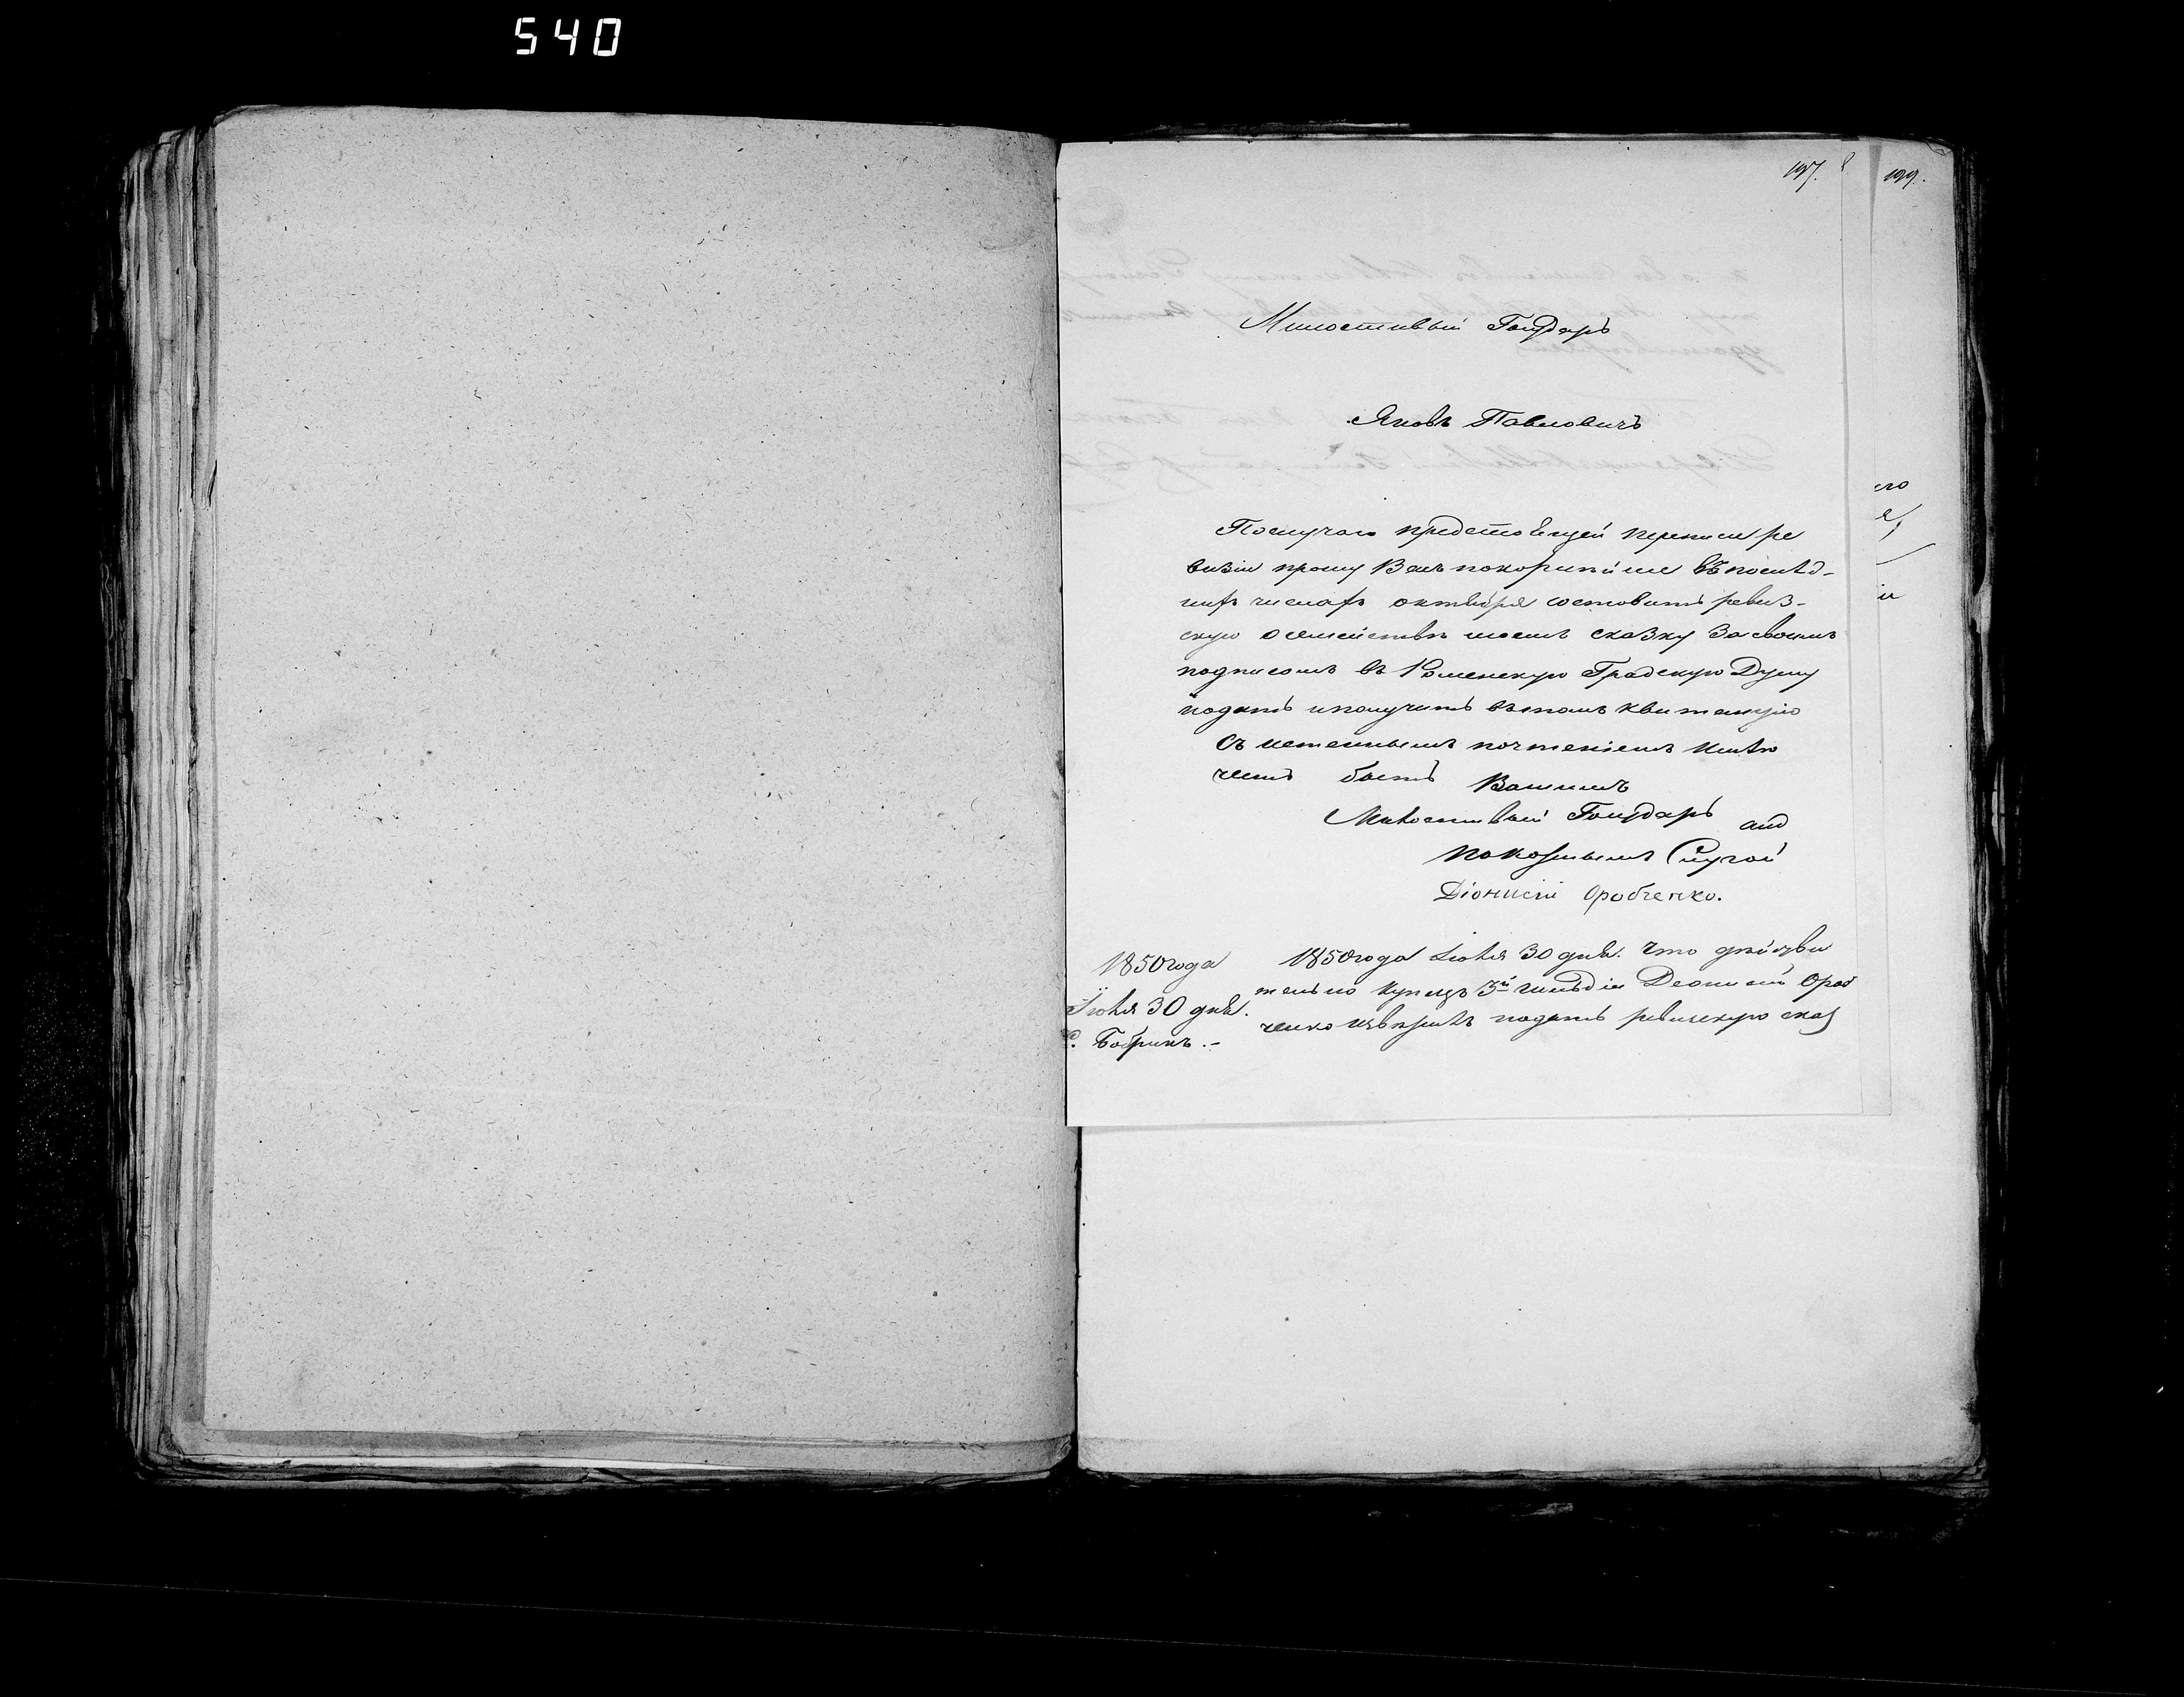 540
197.
199.
Милостивый Государь
Яковъ Павловичъ
Послучаю предстоящей переписи ре
визіи прошу Васъ покорнѣйше въ послѣд-
нихъ числахъ октября составить ревиз-
скую о семействѣ моемъ сказку за своимъ
подписомъ въ Роменскую Градскую Думу
подать и получить въ томъ квитанцію
Съ истеннымъ почтеніемъ имѣю
честь быть Вашимъ
Милостивый Государь
покорнымъ Слугой
Діонисій Оробченко.
1850 года
Іюля 30 дня.
С. Бобрикъ.-
1850 года Іюля 30 дня. Что дѣйстви
тельно Купецъ 3й гильдіи Деонисій Ороб
ченко ввѣрилъ подать ревизскую сказ
его
я,
и